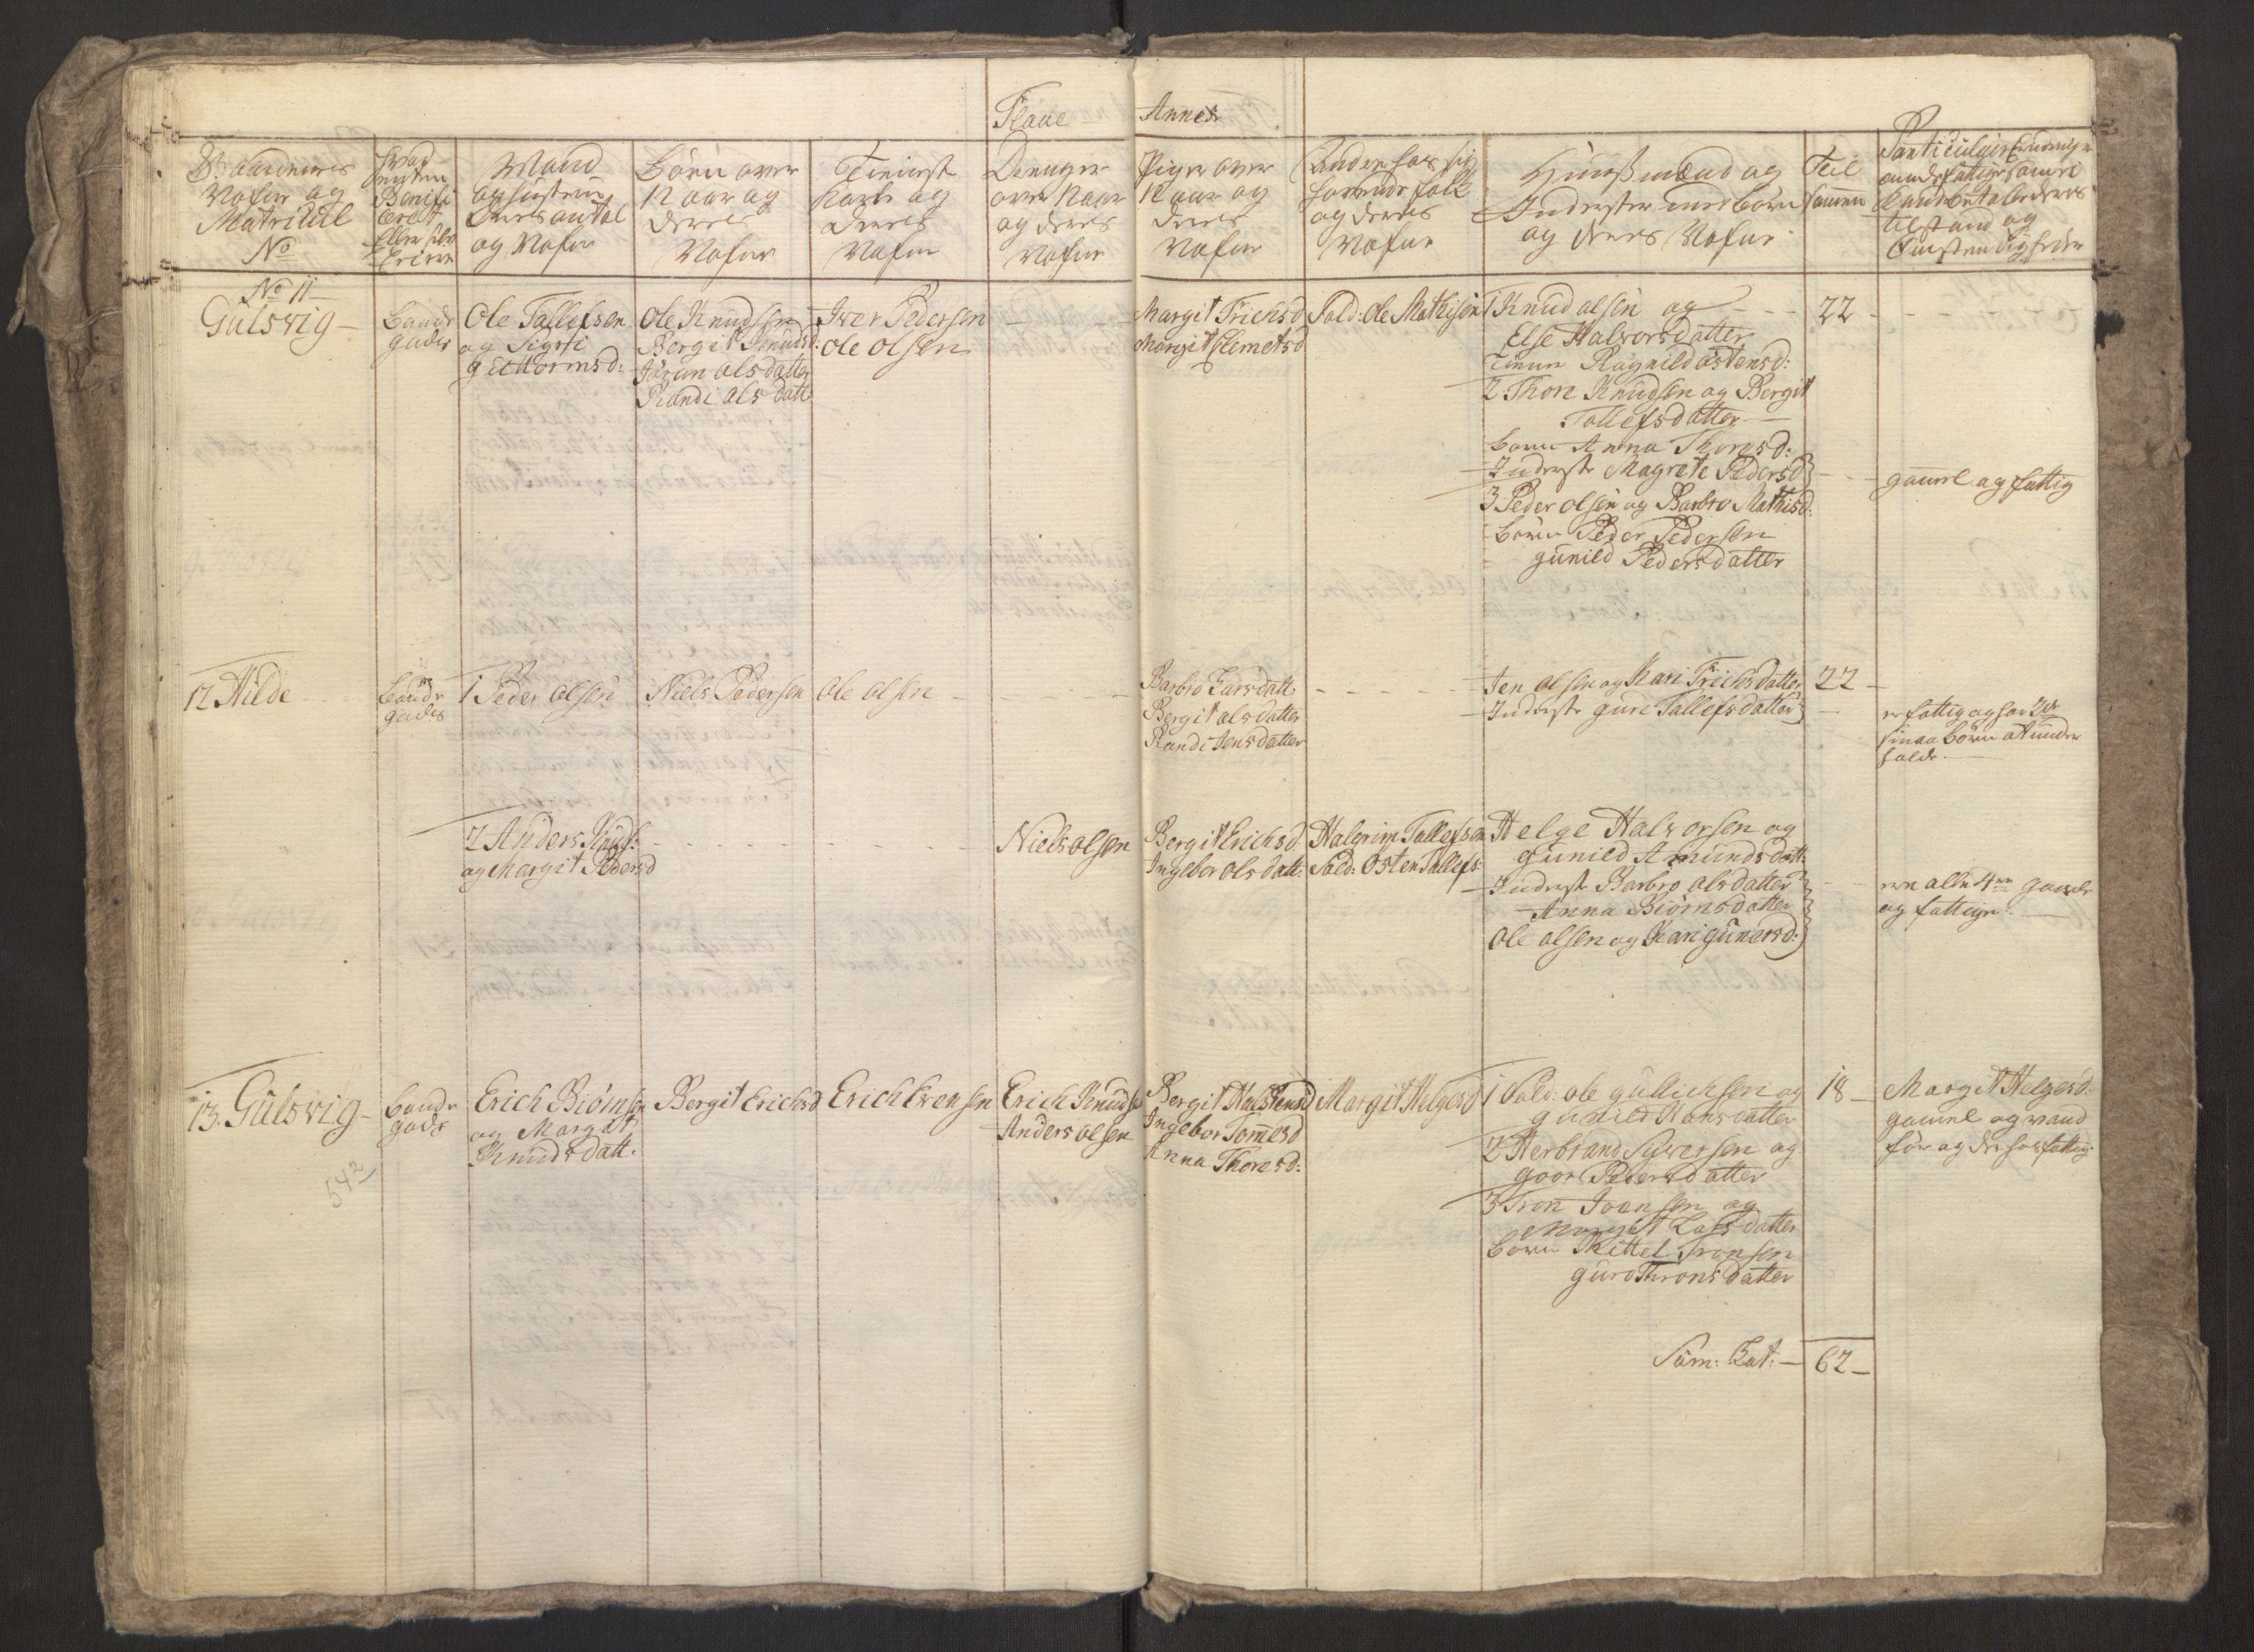 Flaae Annex
Gaardenes
Nafne og
Matricul
No
Mand
og Hustrue
Deres antal
og Nafne
Børn over
12 aar og
deres
Nafne
Tieniste
Karle og
deres
Nafne
Drenger
over 12 aar
og deres
Nafne
Piger over
12 aar og
deres
Nafne
folk
og deres
Nafne
Huusmænd og
Inderster med børn
og deres Nafne
Til
sammen
tilstand og
No 11
Gulsvig
Bonde
gods
Ole Tollefsen
og Sigri
Guttormsd:
Ole Knudsen
Bergit Knudsd:
Jøran Olsdatter
Randi Olsdatt
Iver Pedersen
Ole Olsen
Margit Erichsd
Margit Clemetsd
Sold: Ole Mathisen
1 Knud Olsen og
Else Halvorsdatter
Ragnild Østensd:
2 Thore Knudsen og Bergit
Tollefsdatter
børn Anna Thoresd:
Inderste Magrete Pedersd
3 Peder Olsen og Barbro Mathisd:
børn Peder Pedersen
Gunild Pedersdatter
22
gamel og fattig
12 Hilde
Bonde
gods
1 Peder Olsen
Niels Pedersen
Ole Olsen
Barbro Larsdatt:
Bergit Olsdatter
Randi Jensdatter
Jen Olsen og Kari Erichsdatter
Inderste Guri Tollefsdatter
22
er fattig og har
smaa børn at under
holde
2 Anders Knuds:
og Margit Pedersd
Niels Olsen
Bergit Erichsd:
Ingebor Olsdatt:
Halgrim Tollefsen
Sold: Osten Tollefs:
Helge Halvorsen og
Gunild Amundsdatt:
Inderste Barbro Olsdatter
Anna Biørnsdatter
Ole Olsen og Kari Gunersd:
ere alle 4re gamle
og fattige
13. Gulsvig
Bonde
gods
Erich Biørnsen
og Margit
Knudsdatt.
Bergit Erichsd
Erich Evensen
Erich Knudsen
Anders Olsen
Bergit Halstensd
Ingebor Tommesd
Anna Thoresd:
Margit Helgesd
1 Sold: Ole Gulichsen og
Gunild Hansdatter
2 Herbrand Syversen og
Goor Pedersdatter
3 Tron Joensen og
Margit Larsdatter
børn Kittel Tronsen
Guro Thronsdatter
18
Margit Helgesd:
gamel og vand
før og derhos fattig
542
Sum: Lat: 62